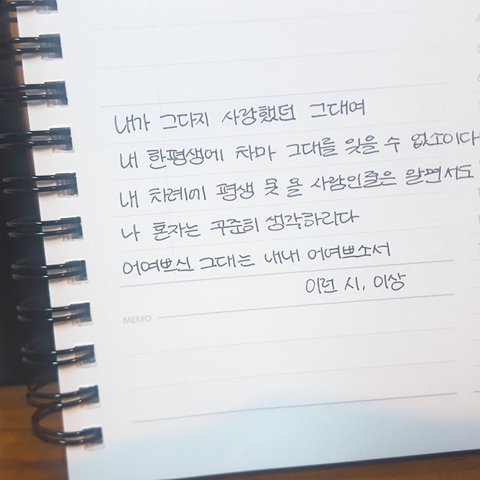 내가 그다지 사랑했던 그대여
내 한평생에 차마 그대를 잊을 수 없소이다
내 차례에 평생 못 올 사람인줄은 알면서도
나 혼자는 꾸준히 생각하리다
어여쁘신 그대는 내내 어여쁘소서
이런 시, 이상
MEMO